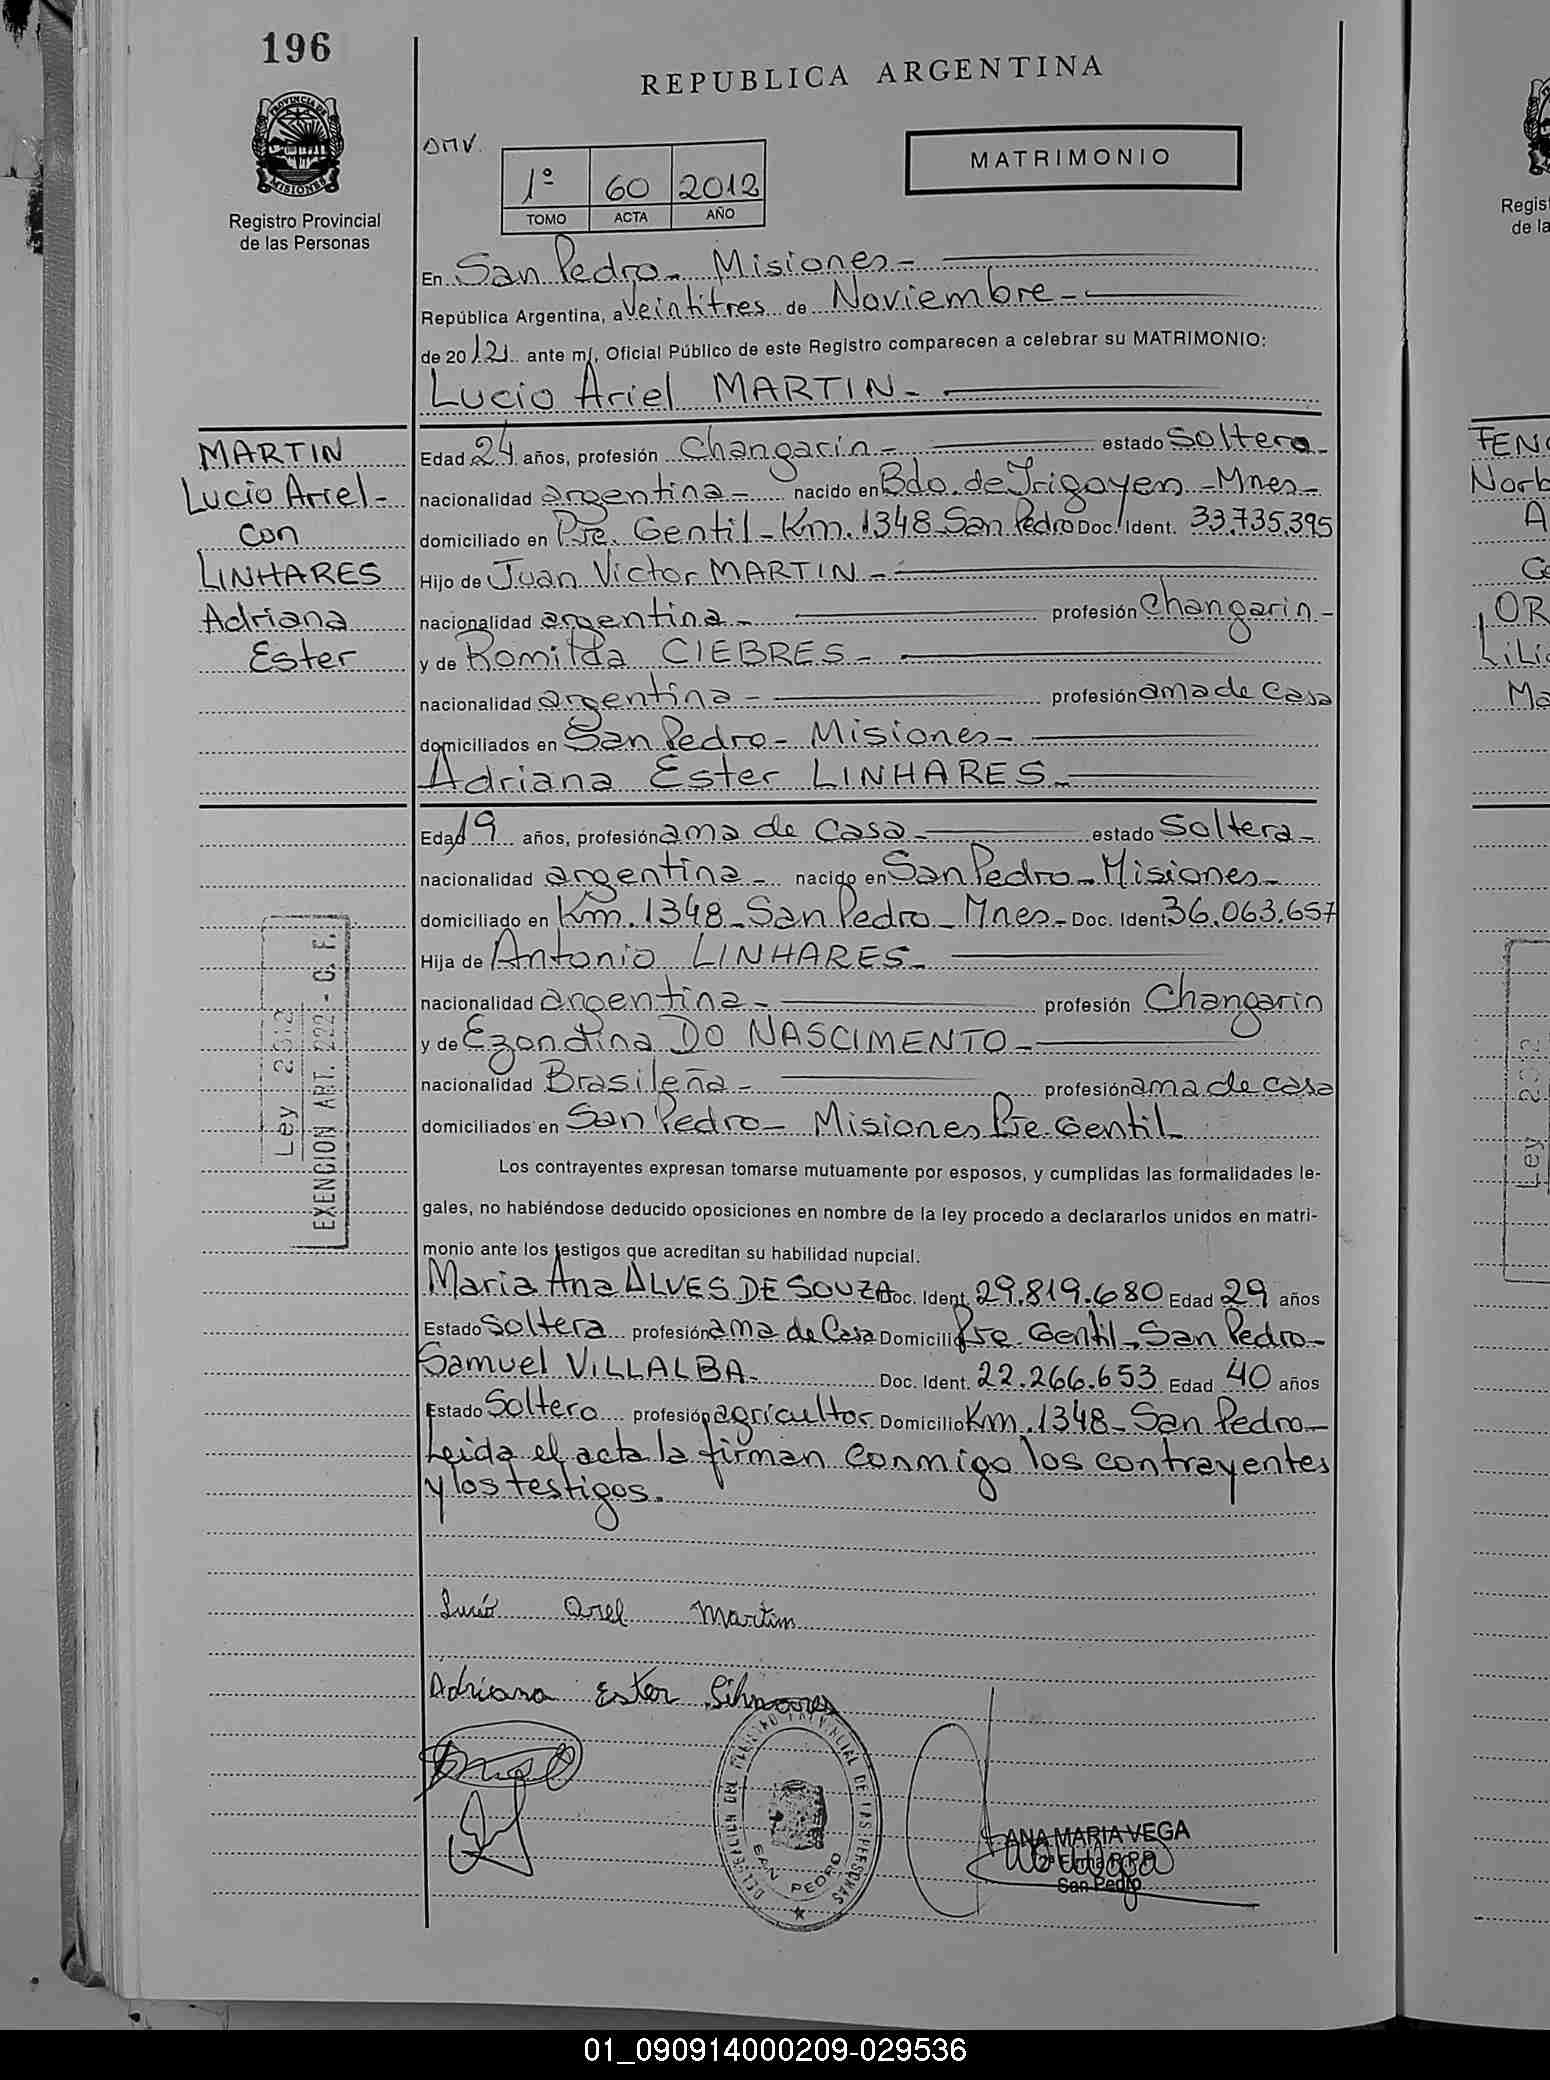 196
REPUBLICA ARGENTINA
PROVINCIA DE
MISIONES
Registro Provincial
de las Personas
DMV.
1º 60 2012
TOMO ACTA AÑO
MATRIMONIO
En San Pedro - Misiones -
República Argentina, a Veintitres de Noviembre -
de 2012 ante mí, Oficial Público de este Registro comparecen a celebrar su MATRIMONIO:
Lucio Ariel MARTIN -
MARTIN
Lucio Ariel -
con
LINHARES
Adriana
Ester
Edad 24 años, profesión Changarin - estado Soltero -
nacionalidad argentina - nacido en Bdo. de Irigoyen - Mnes -
domiciliado en Pje. Gentil - Km. 1348 San Pedro Doc. Ident. 33.735.395
Hijo de Juan Victor MARTIN -
nacionalidad argentina - profesión Changarin -
y de Romilda CIEBRES -
nacionalidad argentina - profesión ama de casa
domiciliados en San Pedro - Misiones -
Adriana Ester LINHARES -
Edad 19 años, profesión ama de casa - estado Soltera -
nacionalidad argentina - nacido en San Pedro - Misiones -
domiciliado en Km. 1348 - San Pedro - Mnes - Doc. Ident. 36.063.657
Hija de Antonio LINHARES -
nacionalidad argentina - profesión Changarin
y de Ezondina DO NASCIMENTO -
nacionalidad Brasileña - profesión ama de casa
domiciliados en San Pedro - Misiones Pje. Gentil
Ley 2312
EXENCION ART. 222 - C. F.
Los contrayentes expresan tomarse mutuamente por esposos, y cumplidas las formalidades le-
gales, no habiéndose deducido oposiciones en nombre de la ley procedo a declararlos unidos en matri-
monio ante los testigos que acreditan su habilidad nupcial.
Maria Ana ALVES DE SOUZA Doc. Ident. 29.819.680 Edad 29 años
Estado Soltera profesión ama de Casa Domicilio Pje. Gentil - San Pedro -
Samuel VILLALBA - Doc. Ident. 22.266.653 Edad 40 años
Estado Soltero profesión agricultor Domicilio Km. 1348 - San Pedro -
Leida el acta la firman conmigo los contrayentes
y los testigos.
Lucio Ariel Martin
Adriana Ester Lihnares
DELEGACION DEL REGISTRO PROVINCIAL DE LAS PERSONAS
SAN PEDRO
ANA MARIA VEGA
San Pedro
Regist
de la
FENO
Norb
A
Co
OR
Lilia
Ma
Ley 2312
01_090914000209-029536